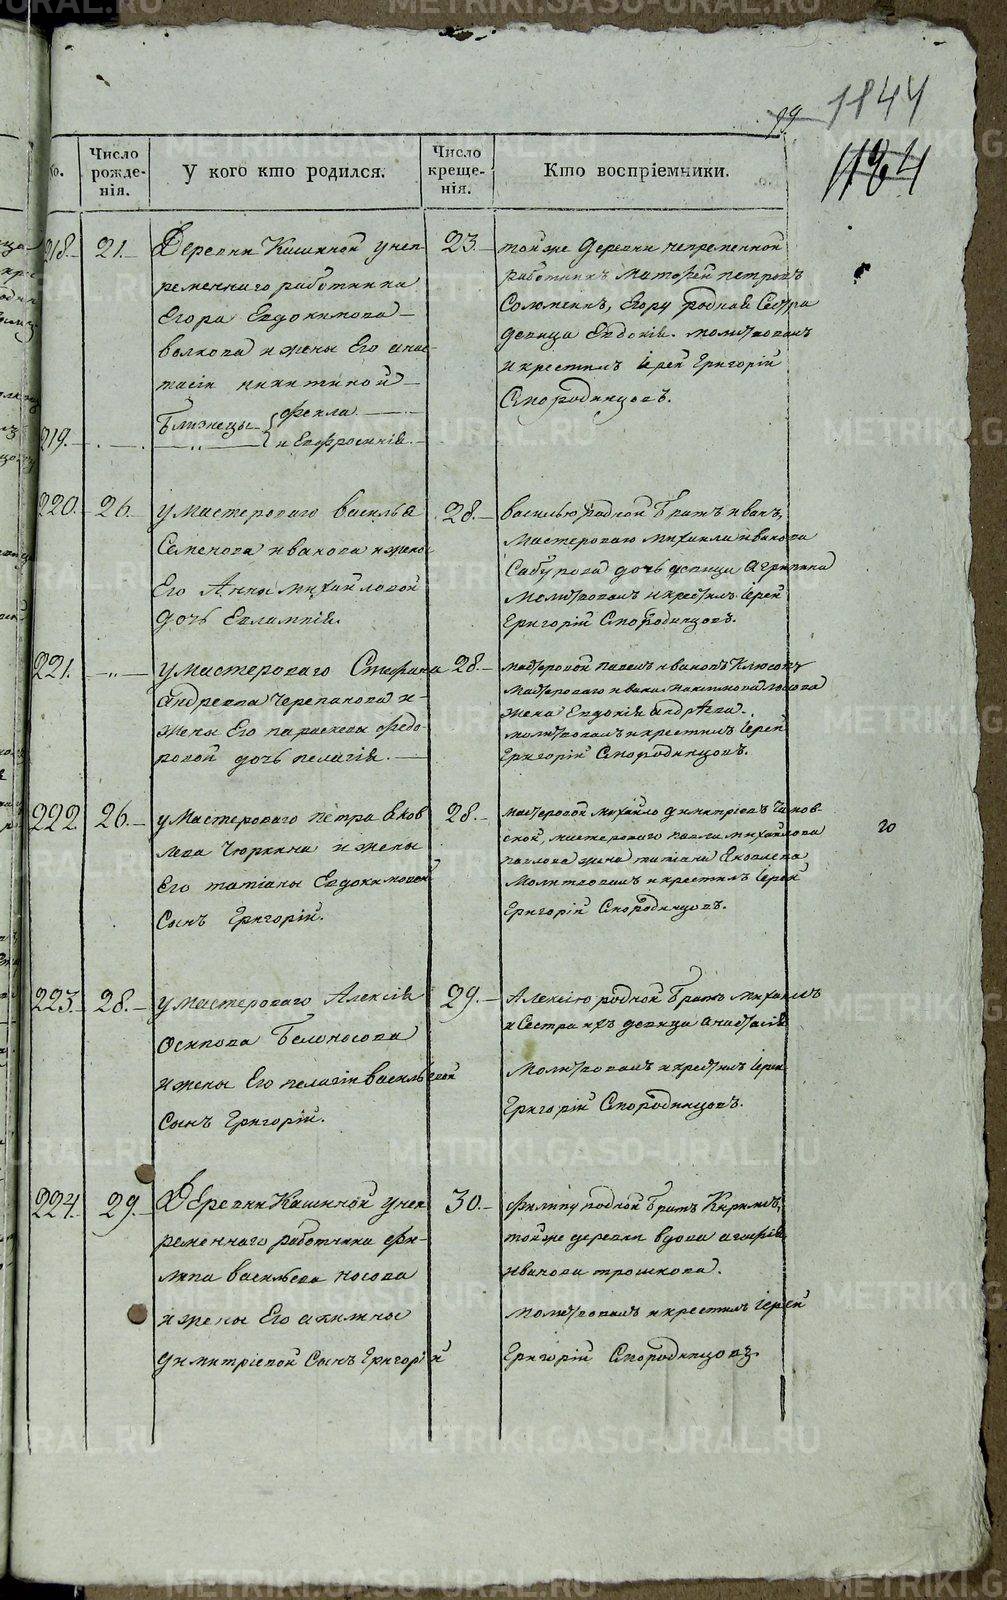 METRIKI.GASO-URAL.RU
99
1844
1184
№.
Число рожде-нія.
У кого кто родился.
Число креще-нія.
Кто воспріемники.
218. 21. Деревни Кашиной у неп-
ременнаго работника
Егора Евдокимова
Волкова и жены Его анас-
тасіи никитиной
Близнецы Фекла
219. и Евфросинія.
23. тойже деревни непременной
работникъ Матфей петровъ
Егору родная Сестра
девица Евдокія. молитвовалъ
и крестилъ Іерей Григорій
Смородинцовъ.
220. 26. у мастероваго василья
Семенова иванова и жены
Его Анны михайловой
дочь Евлампія.
28. василью родной Братъ иванъ,
мастероваго михаила иванова
дочь девица Агрипина
Молитвовалъ и крестилъ Іерей
Григорій Смородинцовъ.
221. у мастероваго Стефана
андреева Черепанова и
жены Его параскевы Федо-
ровой дочь пелагія.
28. мастеровой павелъ ивановъ
мастероваго ивана
жена Евдокія андреева.
молитвовалъ и крестилъ Іерей
Григорій Смородинцовъ.
222 26. у мастероваго петра Яков
лева Чюркина и жены
Его татіаны Евдокимовой
Сынъ Григорій.
28. мастеровой михайло димитріевъ
мастероваго павла михайлова
павлова жена татіана Яковлева
Молитвовалъ и крестилъ Іерей
Григорій Смородинцовъ.
20
223. 28. у мастероваго Алексія
осипова Белоносова
и жены Его пелагіи васильевой
Сынъ Григорій.
29. Алексію родной Братъ михаилъ
и Сестра ихъ девица анастасія
Молитвовалъ и крестилъ Іерей
Григорій Смородинцовъ.
224. 29. Деревни Кашиной у неп
ременнаго работника Фи-
липа васильева носова
и жены Его акилины
димитріевой Сынъ Григорій
30. Филипу родной Братъ Кирилъ,
тойже деревни вдова агафія
иванова трошкова.
молитвовалъ и крестилъ Іерей
Григорій Смородинцовъ